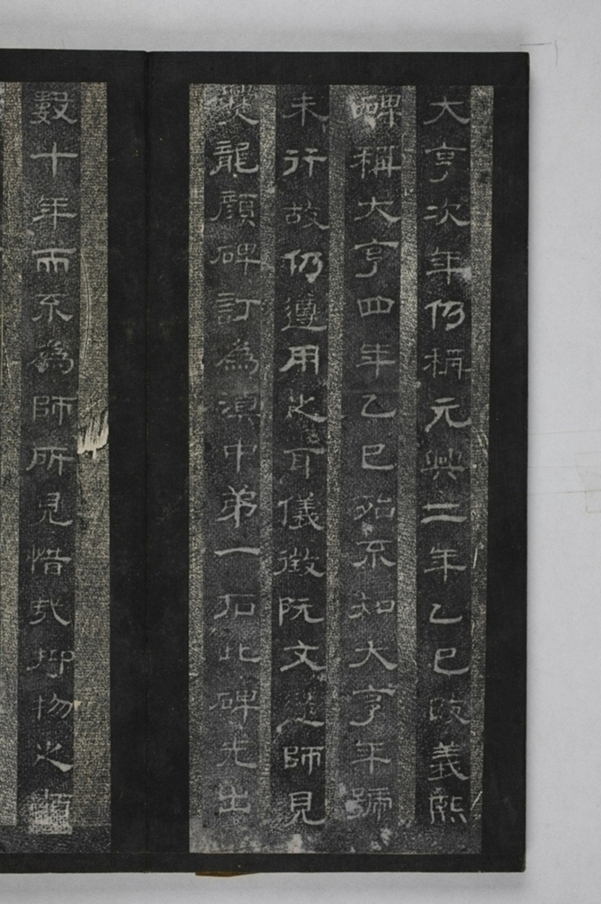 大亨次年仍稱元興二年乙巳改義熙
碑稱大亨四年乙巳殆不知大亨年號
未行故仍遵用之耳儀徵阮文達師見
爨龍顏碑訂為滇中第一石此碑先出
數十年而不為師所見惜哉抑物之顯